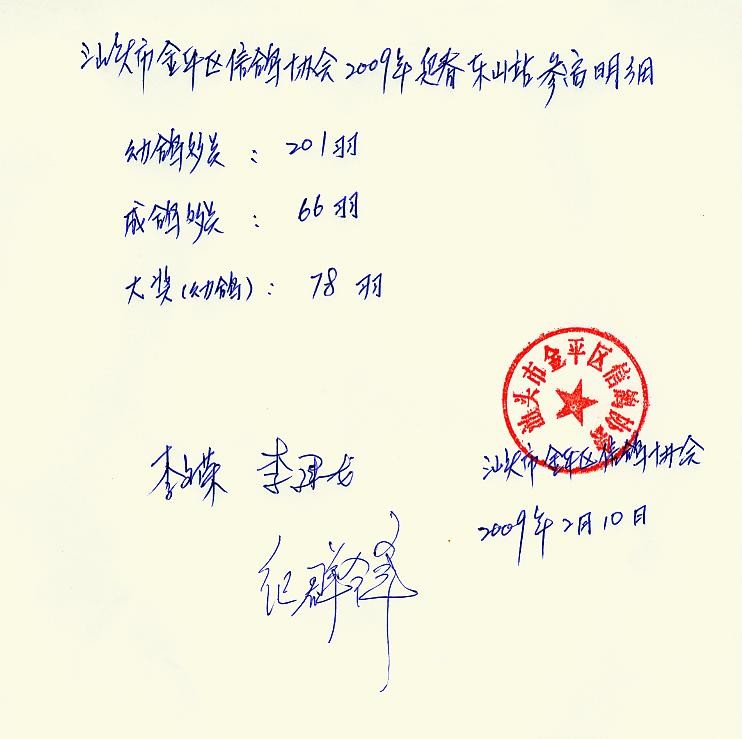 汕头市金平区信鸽协会2009年迎春东山站参赛明细
幼鸽多关 : 201羽
成鸽多关 : 66羽
大奖(幼鸽) : 78羽
汕头市金平区信鸽协会
李 荣 李
汕头市金平区信鸽协会
纪群
2009年2月10日